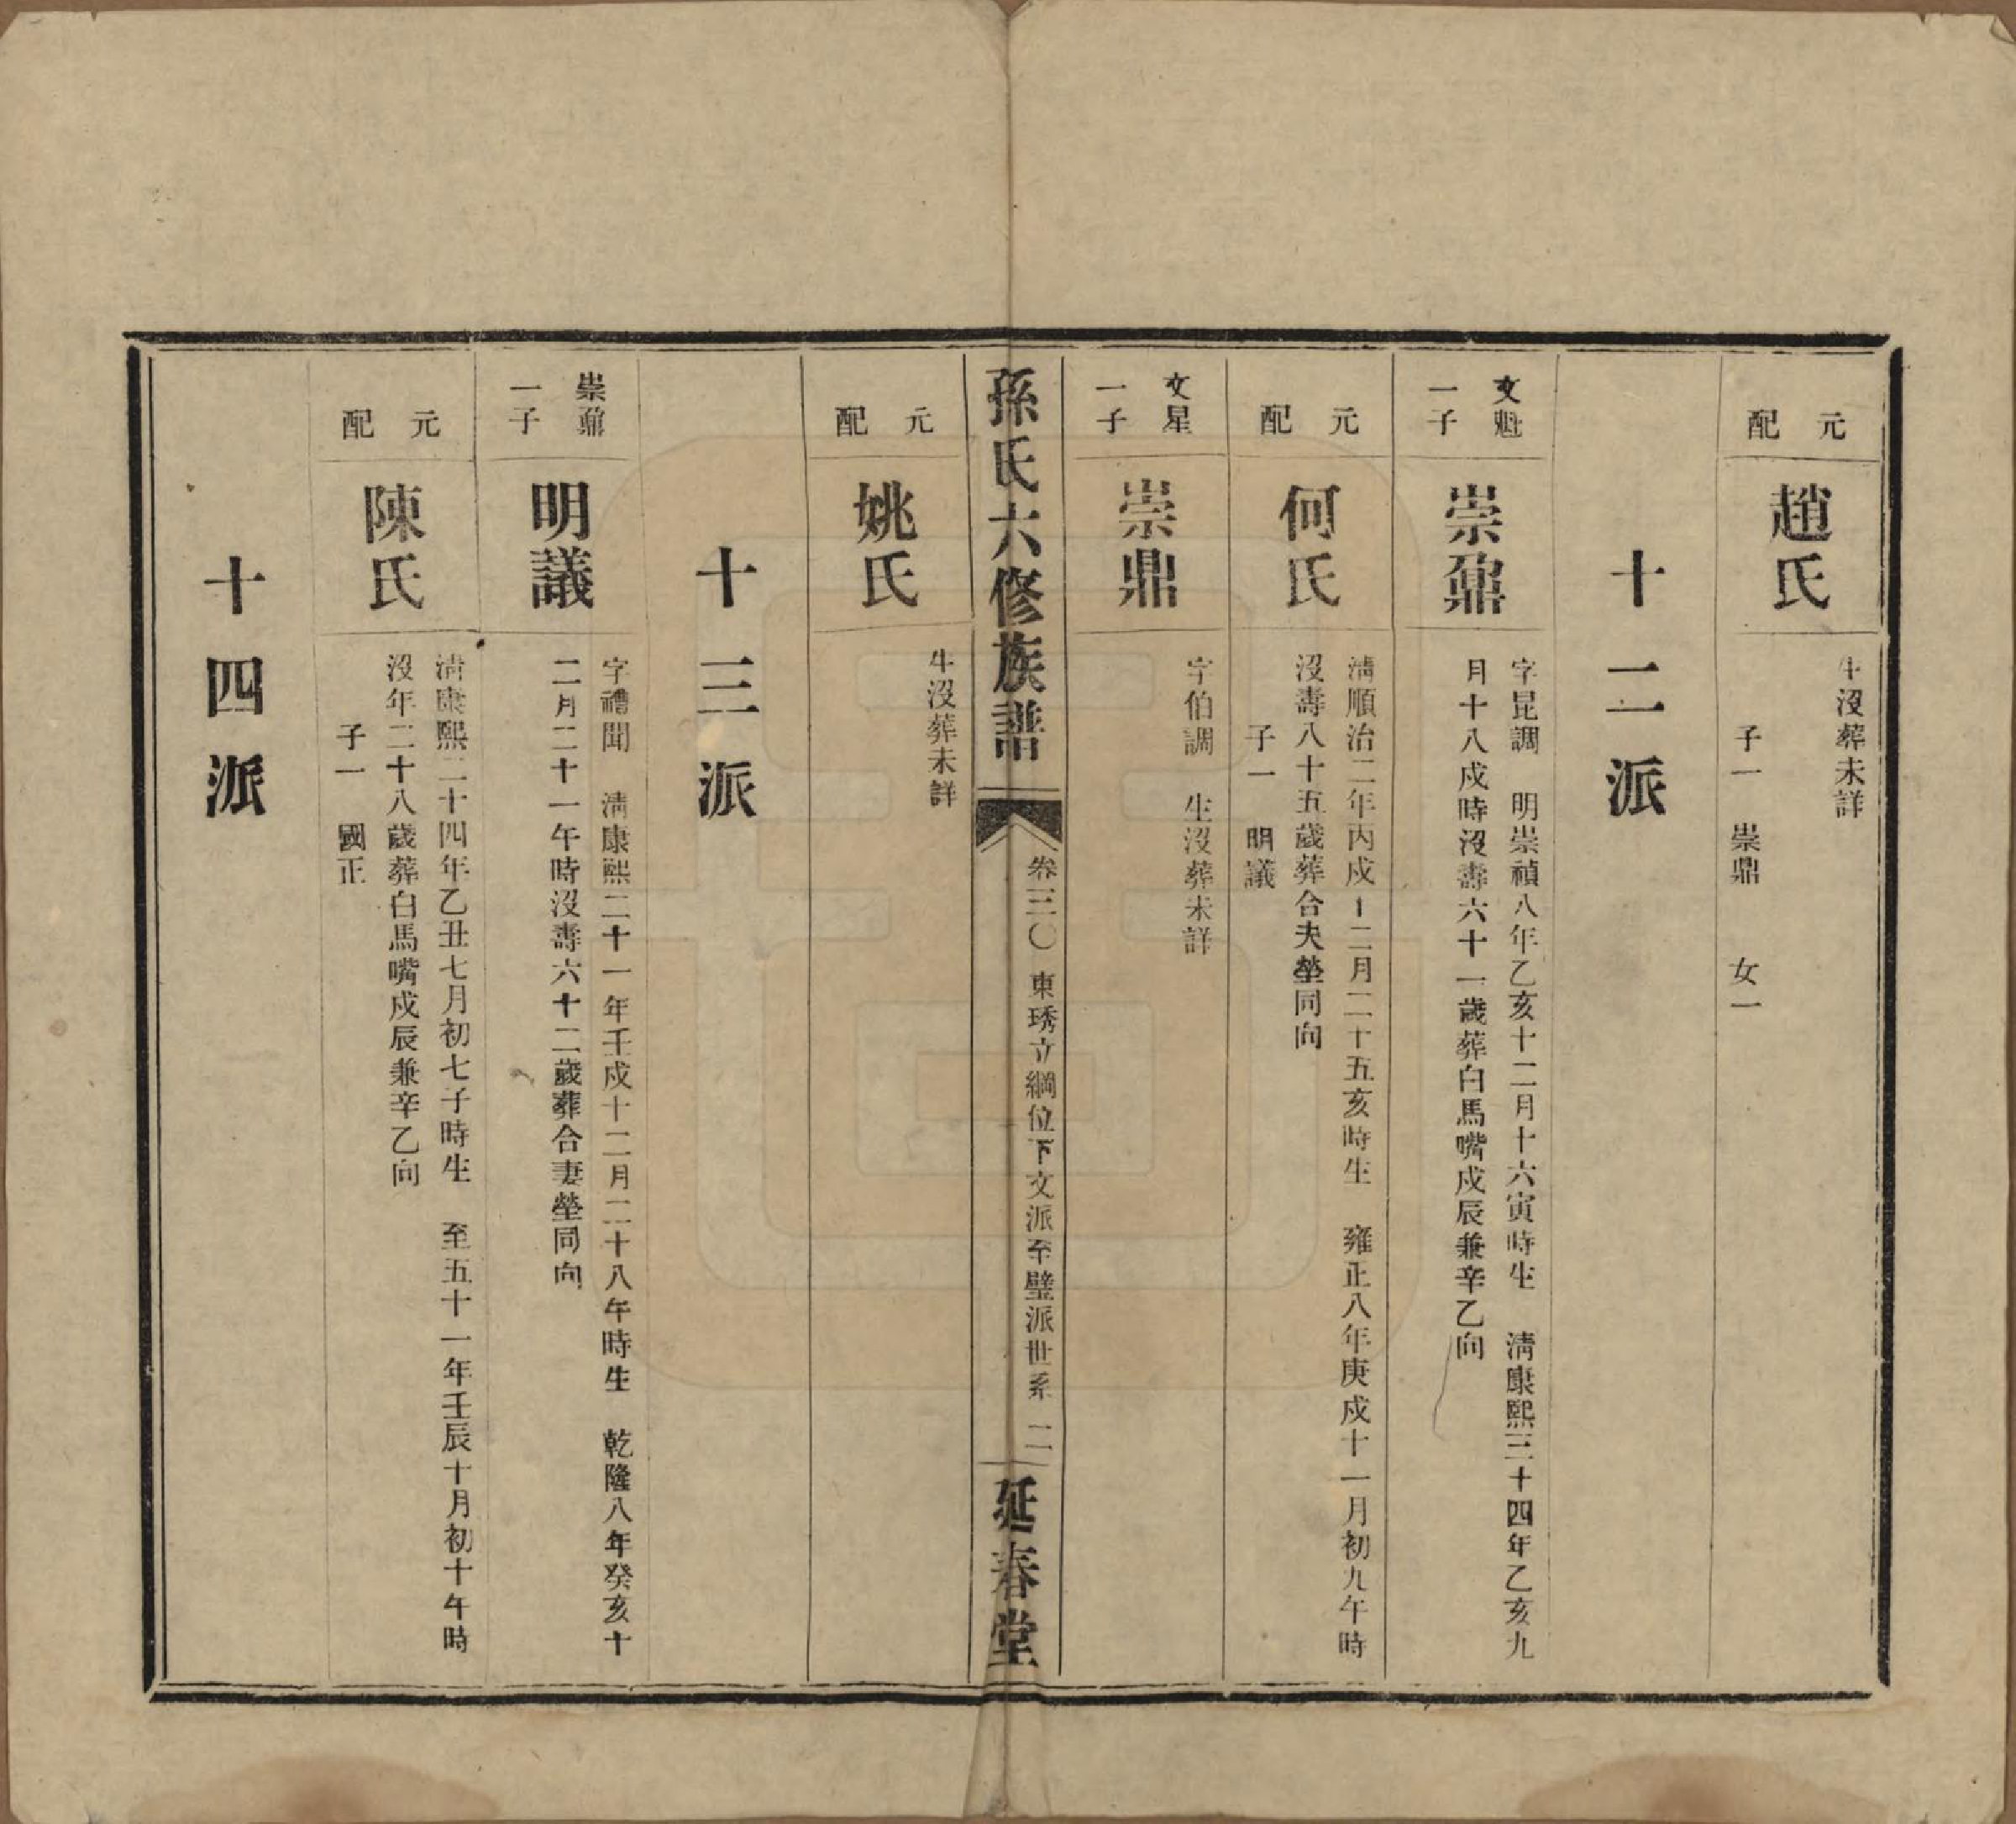 元配
趙氏
生沒葬未詳
子一 崇鼎 女一
十二派
文魁
一子
崇鼐
字昆調 明崇禎八年乙亥十二月十六寅時生 淸康熙三十四年乙亥九
月十八戍時沒壽六十一歲葬白馬嘴戍辰兼辛乙向
元配
何氏
淸順治二年丙戍十二月二十五亥時生 雍正八年庚戍十一月初九午時
沒壽八十五歲葬合夫塋同向
子一 明議
文星
一子
崇鼎
字伯調 生沒葬未詳
孫氏六修族譜
卷三〇 東琇立綱位下文派至璧派世系 二
延春堂
元配
姚氏
生沒葬未詳
十三派
崇鼐
一子
明議
字禮聞 淸康熙二十一年壬戍十二月二十八午時生 乾隆八年癸亥十
二月二十一午時沒壽六十二歲葬合妻塋同向
元配
陳氏
淸康熙二十四年乙丑七月初七子時生 至五十一年壬辰十月初十午時
沒年二十八歲葬白馬嘴戍辰兼辛乙向
子一 國正
十四派